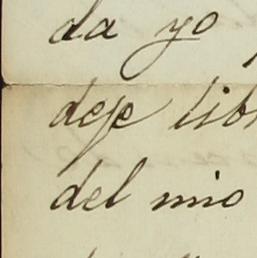 da yo
deje lib
del mio